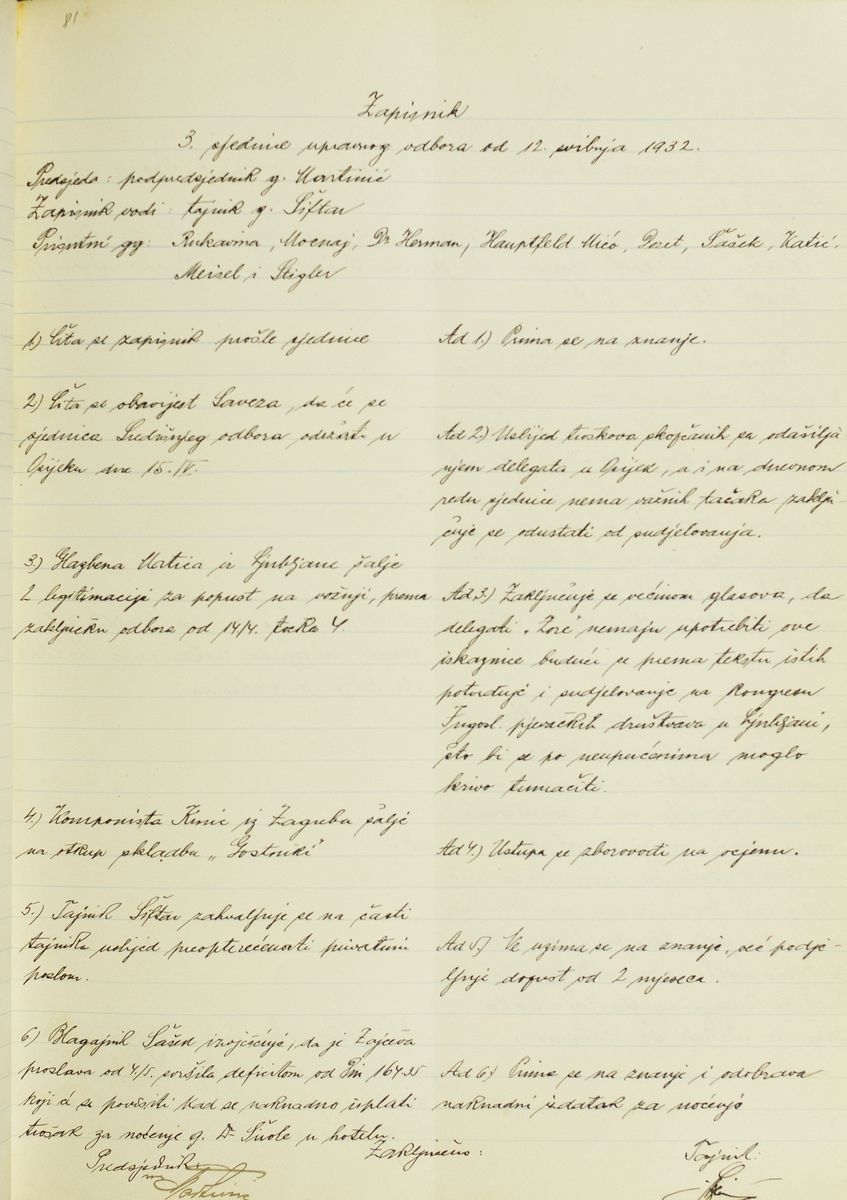 81
Zapisnik
3. sjednice upravnog odbora od 12. svibnja 1932.
Predsjeda: podpredsjednik g. Martinić
Zapisnik vodi: tajnik g. Šiftar
Prisutni gg: Rukavina, Mocnaj, Dr Herman, Hauptfeld Mićo, Dozet, Šašek, Katić,
Meisel i Stigler
1) Čita se zapisnik prošle sjednice
Ad 1) Prima se na znanje.
2) Čita se obavijest Saveza, da će se
sjednica Središnjeg odbora održati u
Osijeku dne 15. IV.
Ad 2) Uslijed troškova skopčanih sa odašilja
njem delegata u Osijek, a i na dnevnom
redu sjednice nema važnih tačaka zaklju
čuje se odustati od sudjelovanja.
3) Glazbena Matica iz Ljubljane šalje
2 legitimacije za popust na vožnji, prema
zaključku odbora od 14/4. točka 4
Ad 3.) Zaključuje se većinom glasova, da
delegati „Zore" nemaju upotrebiti ove
iskaznice budući se prema tekstu istih
potvrđuje i sudjelovanje na Kongresu
Jugosl. pjevačkih društava u Ljubljani,
što bi se po neupućenima moglo
krivo tumačiti.
4.) Komponista Kinic iz Zagreba šalje
na otkup skladbu „Gostonki"
Ad 4.) Ustupa se zborovođi na ocjenu.
5.) Tajnik Šiftar zahvaljuje se na časti
tajnika uslijed preopterećenosti privatnim
poslom.
Ad 5) Ne uzima se na znanje, već podje-
ljuje dopust od 2 mjeseca.
6) Blagajnik Šašek izvješćuje, da je Zajčeva
proslava od 4/V. svršila deficitom od Din 164.35
koji će se povisiti kad se naknadno isplati
trošak za noćenje g. Dr Širole u hotelu.
Ad 6) Prima se na znanje i odobrava
naknadni izdatak za noćenje
Zaključeno:
Predsjednik:
Tajnik: